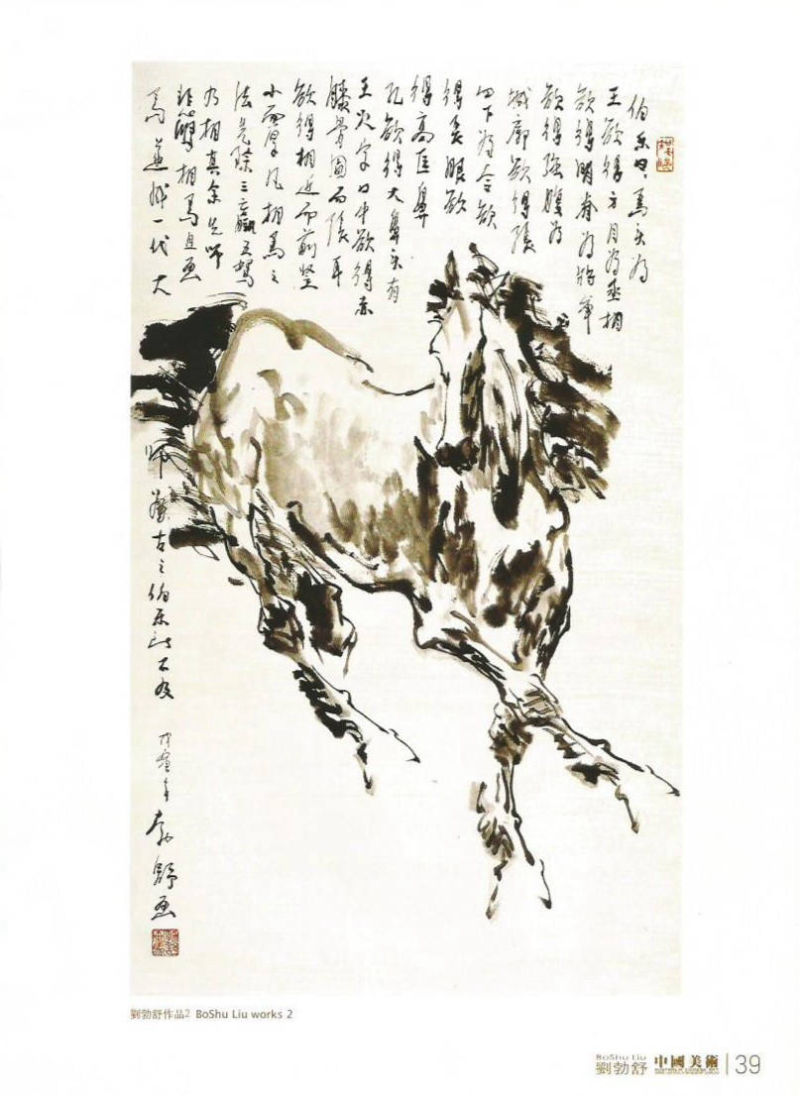 伯乐曰馬头为
王欲得方目为丞相
欲得明脊为将军
欲得强腹为
城廓欲得张
四下为令欲
得長眼欲
得高匡鼻
孔欲得大鼻头有
王火字口中欲得赤
膝骨圆而张耳
欲得相近而前竖
小而厚凡相馬之
法先除三羸五驽
乃相其余先师
悲鸿相馬且画
馬 一代大
师 古之伯乐所不及
戊寅年勃舒画
劉勃舒作品2 BoShu Liu works 2
BoShu Liu
劉勃舒 中國美術 39